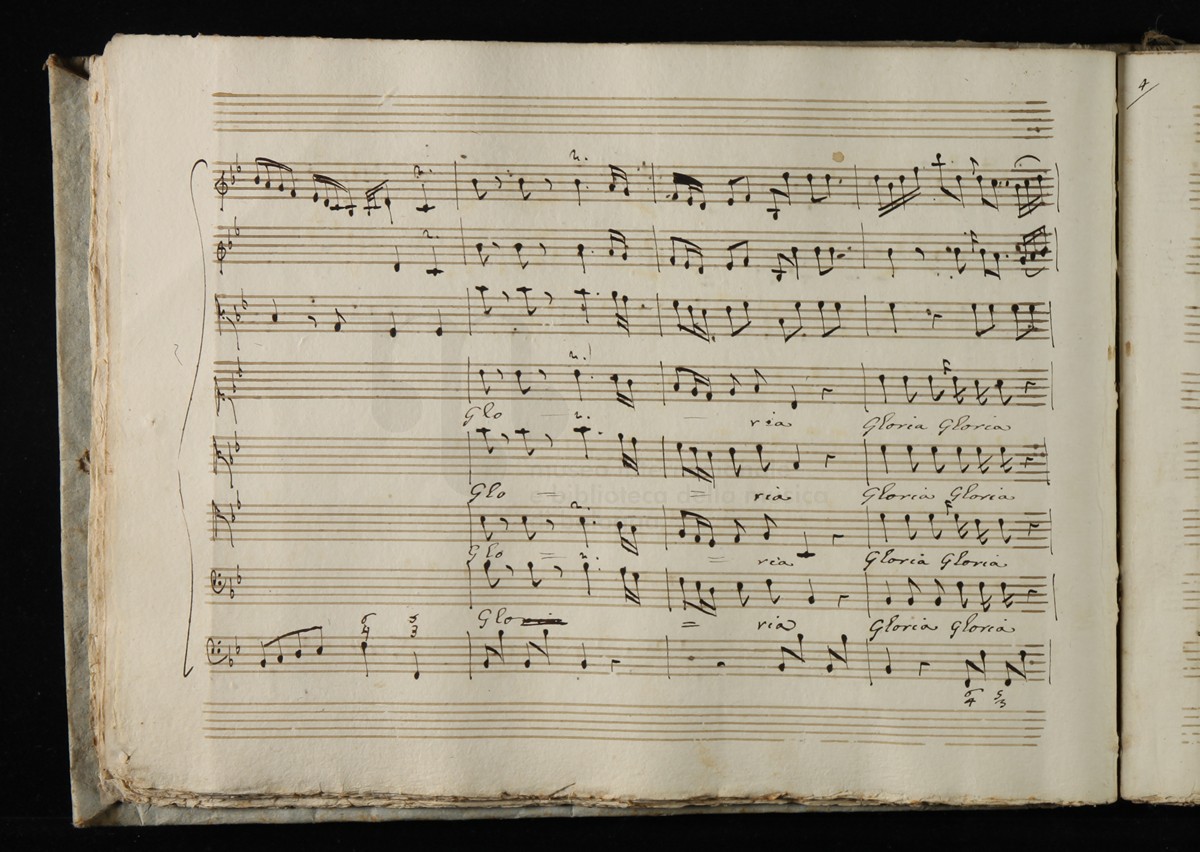 4
Glo = ria Gloria Gloria
Glo = = ria Gloria Gloria
Glo = = ria Gloria Gloria
6 5
4 3
Glo = ria Gloria Gloria
6 5
4 3
museo
e biblioteca della musica